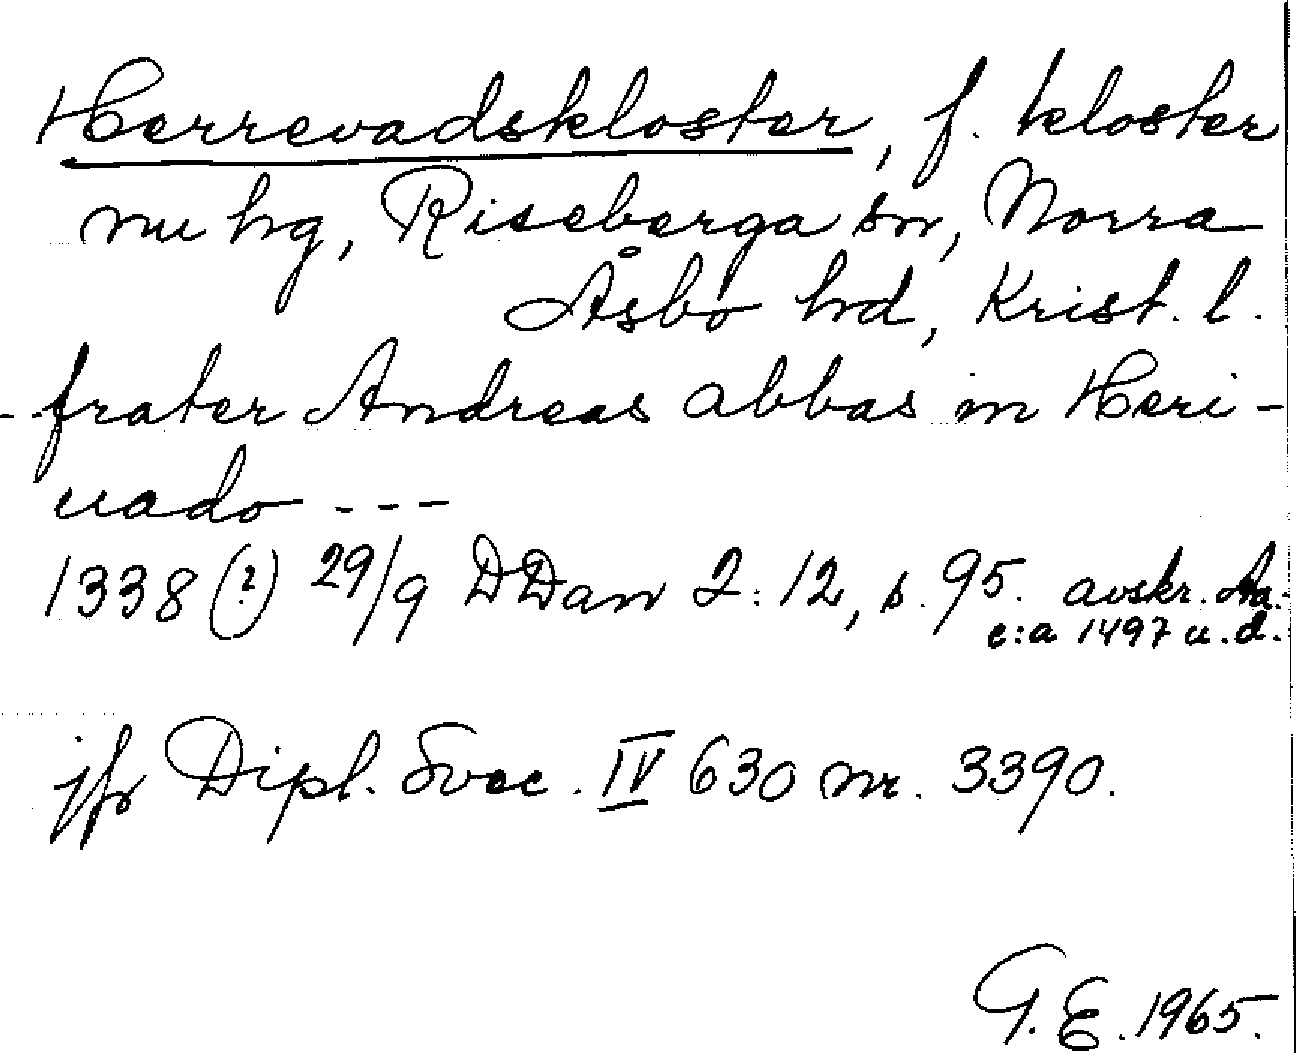 Herrevadskloster, f. kloster
nu hg, Riseberga sn, Norra
Åsbo hd, Krist. l.
- frater Andreas abbas in Heri-
uado ---
1338 (?) 29/9 DDan 2:12, s. 95. avskr. Aa.
c:a 1497 u.d.
jfr Dipl. Svec. IV 630 nr. 3390.
G. E. 1965.